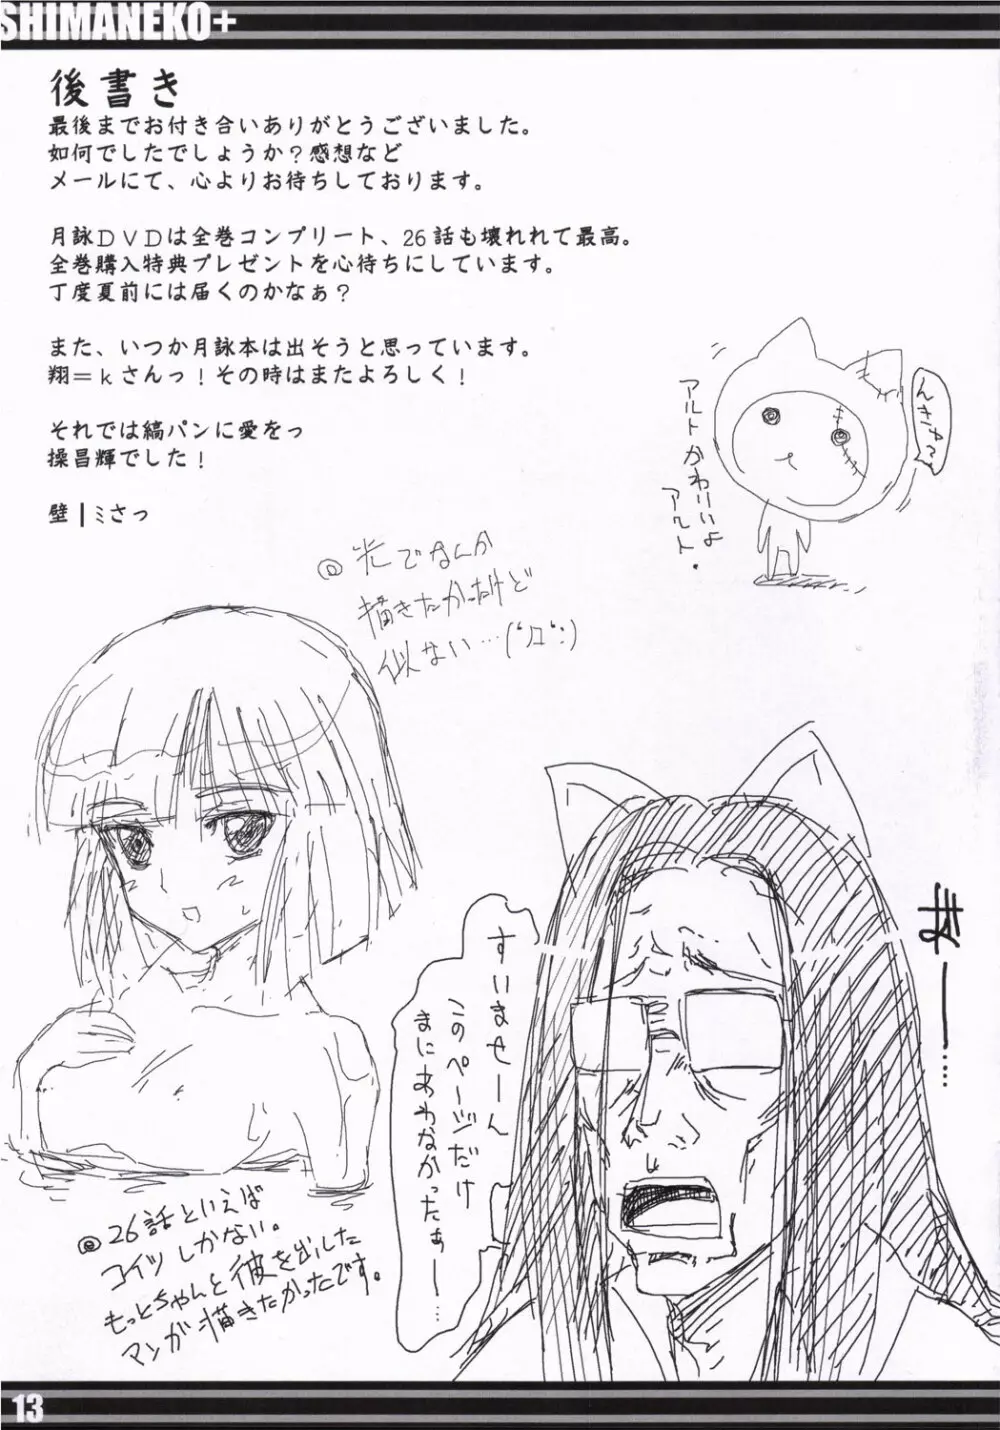 SHIMANEKO+
後書き
最後までお付き合いありがとうございました。
如何でしたでしょうか？感想など
メールにて、心よりお待ちしております。
月詠ＤＶＤは全巻コンプリート、26話も壊れれて最高。
全巻購入特典プレゼントを心待ちにしています。
丁度夏前には届くのかなぁ？
また、いつか月詠本は出そうと思っています。
翔＝ｋさんっ！その時はまたよろしく！
それでは縞パンに愛をっ
操昌輝でした！
壁┃ミさっ
んきゅ？
アルトかわいいよ
アルト。
@光でなんか
描きたかったけど
似ない…(‘Д‘;)
ま゛ー……
すいませーん
このページだけ
まにあわなかったぁー…
@26話といえば
コイツしかない。
もっとちゃんと彼を出した
マンガ描きたかったです。
13